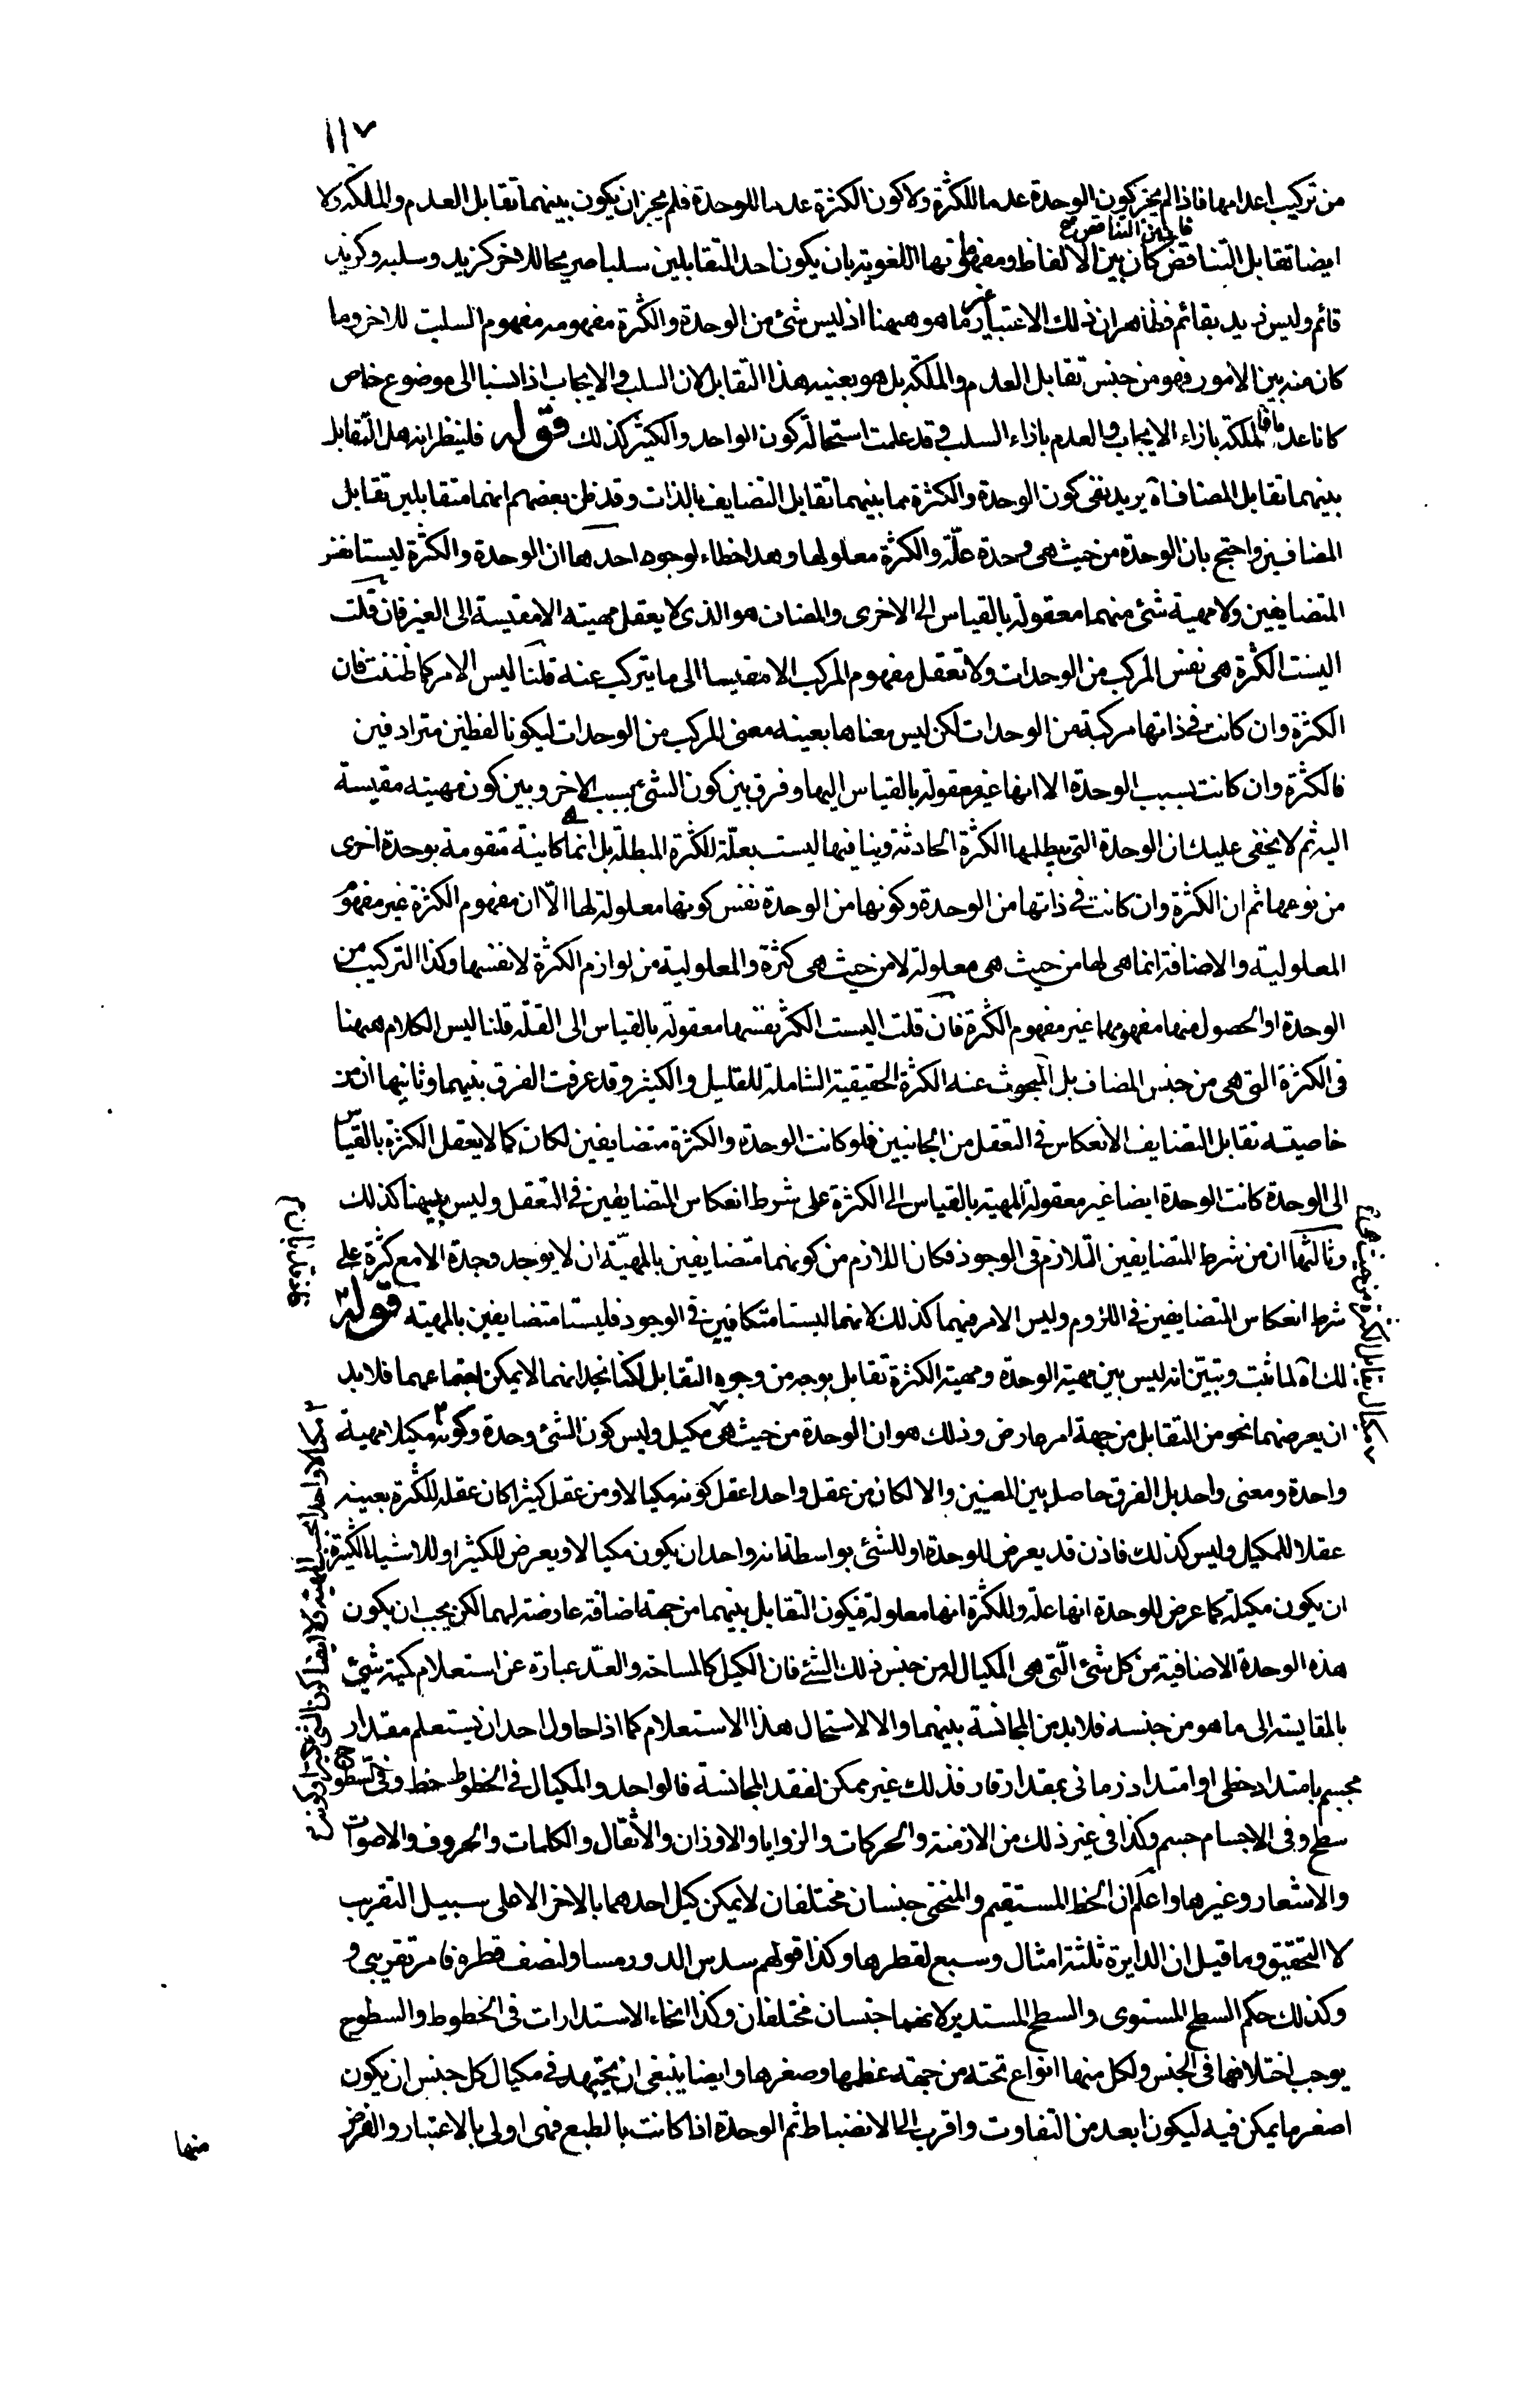 ١١٧
من تركيب اعدامها فاذا لم يجز كون الوحدة عدما للكثرة ولا كون الكثرة عدما للوحدة فلم يجز ان يكون بينهما تقابل العدم والملكة ولا
ايضا تقابل التناقض كان بين الالفاظ ومفهوماتها اللغوية بان يكون احد المتقابلين سلبا صريحا للاخر كزيد وسلبه وكزيد
فان التناقض مع
قائم وليس زيد بقائم فظاهر ان ذلك الاعتبار غير ما هو ههنا اذ ليس شئ من الوحدة والكثرة مفهومه مفهوم السلب للاخر وما
كان منه بين الامور فهو من جنس تقابل العدم والملكة بل هو بعينه هذا التقابل لان السلب والايجاب اذا نسبا الى موضوع خاص
كانا عدما فالملكة بازاء الايجاب والعدم بازاء السلب وقد علمت استحالة كون الواحد والكثير كذلك قوله فلينظر انه هل التقابل
بينهما تقابل المضاف آه يريد نفى كون الوحدة والكثرة مما بينهما تقابل التضايف بالذات وقد ظن بعضهم انهما متقابلين تقابل
المضافين واحتج بان الوحدة من حيث هى وحدة علة والكثرة معلولها وهذا خطاء لوجوه احدها ان الوحدة والكثرة ليستا نفس
المتضايفين ولا مهية شئ منهما معقولة بالقياس الى الاخرى والمضاف هو الذى لا يعقل مهيته الا مقيسة الى الغير فان قلت
اليست الكثرة هى نفس المركب من الوحدات ولا تعقل مفهوم المركب الا مقيسا الى ما يتركب عنه قلنا ليس الامر كما ظننت فان
الكثرة وان كانت فى ذاتها مركبة من الوحدات لكن ليس معناها بعينه معنى المركب من الوحدات ليكونا لفظين مترادفين
فالكثرة وان كانت بسبب الوحدة الا انها غير معقولة بالقياس اليها وفرق بين كون الشئ بسبب الاخر وبين كون مهيته مقيسة
اليه ثم لا يخفى عليك ان الوحدة التى يبطلها الكثرة الحادثة وينافيها ليست بعلة للكثرة المبطلة بل انما كانت متقومة بوحدة اخرى
من نوعها ثم ان الكثرة وان كانت فى ذاتها من الوحدة وكونها من الوحدة نفس كونها معلولة لها الا ان مفهوم الكثرة غير مفهوم
المعلولية والاضافة انما هى لها من حيث هى معلولة لا من حيث هى كثرة والمعلولية من لوازم الكثرة لا نفسها وكذا التركيب من
الوحدة او الحصول منها مفهومهما غير مفهوم الكثرة فان قلت اليست الكثرة نفسها معقولة بالقياس الى القلة قلنا ليس الكلام ههنا
فى الكثرة التى هى من جنس المضاف بل المبحوث عنه الكثرة الحقيقية الشاملة للقليل والكثير وقد عرفت الفرق بينهما وثانيها ان من
خاصية تقابل التضايف الانعكاس فى التعقل من الجانبين فلو كانت الوحدة والكثرة متضايفين لكان كما لا يعقل الكثرة بالقياس
الى الوحدة كانت الوحدة ايضا غير معقولة المهية بالقياس الى الكثرة على شرط انعكاس المتضايفين فى التعقل وليس بينهما كذلك
وثالثها ان من شرط المتضايفين التلازم فى الوجود فكان اللازم من كونهما متضايفين بالمهية ان لا يوجد وحدة الا مع كثرة على
شرط انعكاس المتضايفين فى اللزوم وليس الامر فيهما كذلك لانهما ليستا متكافيين فى الوجود فليستا متضايفين بالمهية قوله
لك آه لما ثبت وتبين انه ليس بين مهية الوحدة ومهية الكثرة تقابل بوجه من وجوه التقابل لكنا نجد انهما لا يمكن اجتماعهما فلا بد
ان يعرضهما نحو من التقابل من جهة امر عارض وذلك هو ان الوحدة من حيث هى مكيل وليس كون الشئ وحدة وكونه مكيلا مهية
واحدة ومعنى واحد بل الفرق حاصل بين المعنيين والا لكان من عقل واحدا عقل كونه مكيالا ومن عقل كثيرا كان عقله للكثرة بعينه
عقلا للمكيل وليس كذلك فاذن قد يعرض للوحدة او للشئ بواسطة انه واحد ان يكون مكيالا ويعرض للكثير او للاشياء الكثيرة
ان يكون مكيلة كما عرض للوحدة انها علة وللكثرة انها معلولة فيكون التقابل بينهما من جهة اضافة عارضة لهما لكن يجب ان يكون
هذه الوحدة الاضافية من كل شئ التى هى المكيال له من جنس ذلك الشئ فان الكيل كالمساحة والعد عبارة عن استعلام كمية شئ
بالمقايسة الى ما هو من جنسه فلا بد من المجانسة بينهما والا لاستحال هذا الاستعلام كما اذا حاول احد ان يستعلم مقدار
مجسم بامتداد خطى او امتداد زمانى بمقدار قار فذلك غير ممكن لفقد المجانسة فالواحد والمكيال فى الخطوط خط وفى السطوح
سطح وفى الاجسام جسم وكذا فى غير ذلك من الازمنة والحركات والزوايا والاوزان والاثقال والكلمات والحروف والاصوات
والاشعار وغيرها واعلم ان الخط المستقيم والمنحنى جنسان مختلفان لا يمكن كيل احدهما بالاخر الا على سبيل التقريب
لا التحقيق وما قيل ان الدايرة ثلثة امثال وسبع لقطرها وكذا قولهم سدس الدور مساو لنصف قطره فامر تقريبى و
وكذلك حكم السطح المستوى والسطح المستدير لانهما جنسان مختلفان وكذا انحاء الاستدارات فى الخطوط والسطوح
يوجب اختلافها فى الجنس ولكل منها انواع تحته من جهة عظمها وصغرها وايضا ينبغى ان يجتهد فى مكيال كل جنس ان يكون
اصغر ما يمكن فيه ليكون ابعد من التفاوت واقرب الى الانضباط ثم الوحدة اذا كانت بالطبع فهى اولى بالاعتبار والفرض
منها
مكيال تقابل الكثرة من حيث هى